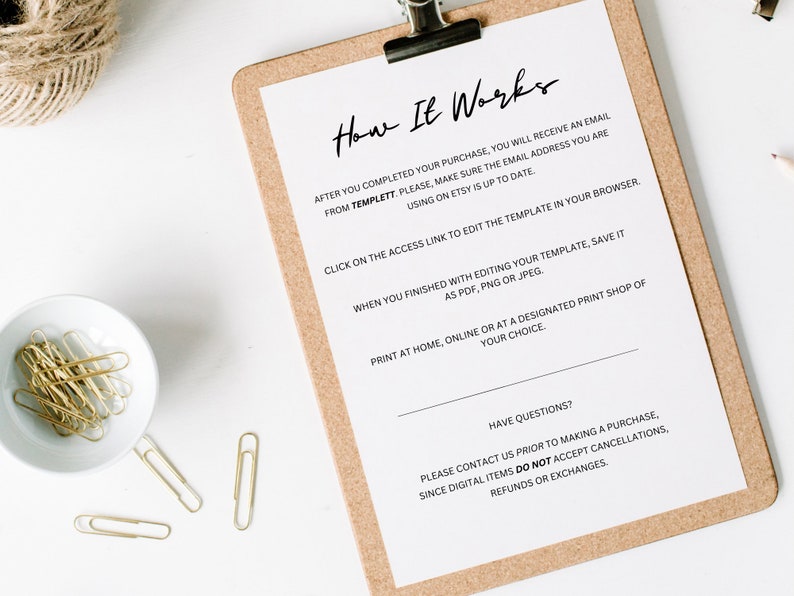 How It Works
AFTER YOU COMPLETED YOUR PURCHASE, YOU WILL RECEIVE AN EMAIL
FROM TEMPLETT. PLEASE, MAKE SURE THE EMAIL ADDRESS YOU ARE
USING ON ETSY IS UP TO DATE.
CLICK ON THE ACCESS LINK TO EDIT THE TEMPLATE IN YOUR BROWSER.
WHEN YOU FINISHED WITH EDITING YOUR TEMPLATE, SAVE IT
AS PDF, PNG OR JPEG.
PRINT AT HOME, ONLINE OR AT A DESIGNATED PRINT SHOP OF
YOUR CHOICE.
HAVE QUESTIONS?
PLEASE CONTACT US PRIOR TO MAKING A PURCHASE,
SINCE DIGITAL ITEMS DO NOT ACCEPT CANCELLATIONS,
REFUNDS OR EXCHANGES.